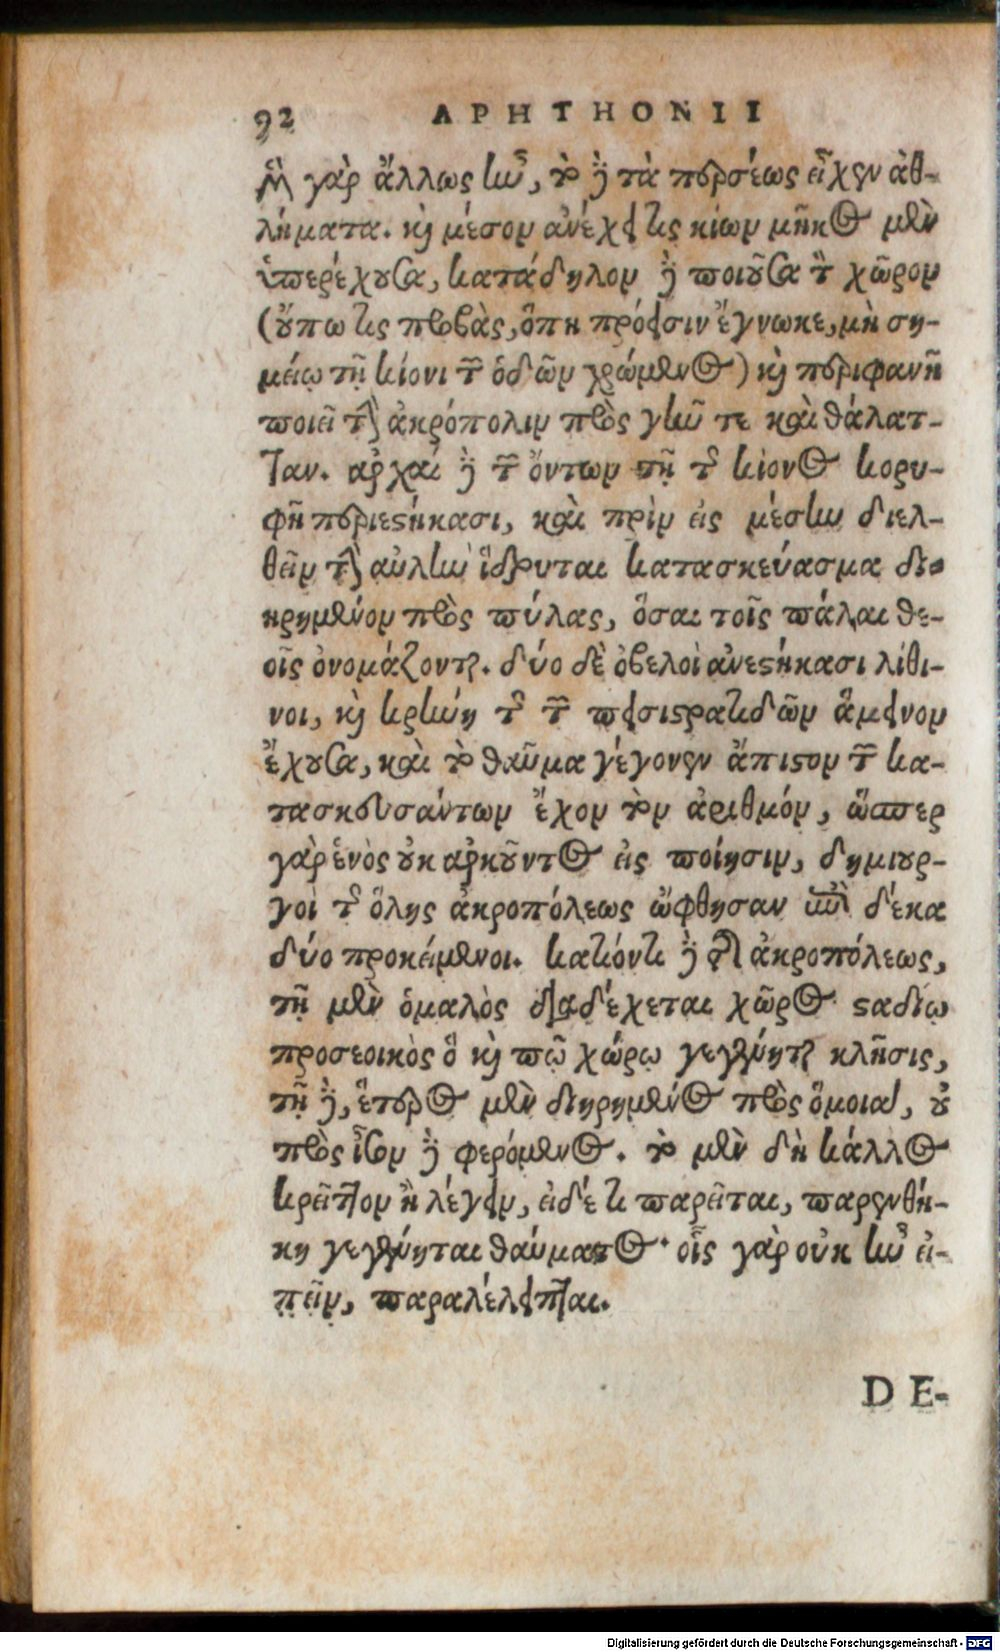 92 APHTHONII
ἢ γὰρ ἄλλως ἦν, τὸ δὲ τὰ περσέως εἶχεν ἀθ-
λήματα. καὶ μέσον ἀνέχει τις κίων μῆκος μὲν
ὑπερέχουσα, κατάδηλον δὲ ποιοῦσα τὸν χῶρον
(οὔπω τις προβὰς, ὅπη πρόεισιν ἔγνωκε, μὴ ση-
μείῳ τῇ κίονι τῶν ὁδῶν χρώμενος) καὶ περιφανῆ
ποιεῖ τὴν ἀκρόπολιν πρὸς γῆν τε καὶ θάλατ-
ταν. ἀρχαὶ δὲ τῶν ὄντων τῇ τοῦ κίονος κορυ-
φῇ περιεστήκασι, καὶ πρὶν εἰς μέσην διελ-
θεῖν τὴν αὐλὴν ἵδρυται κατασκεύασμα διῃ-
κρημένον πρὸς πύλας, ὅσαι τοῖς πάλαι θε-
οῖς ὀνομάζονται. δύο δὲ ὀβελοὶ ἀνεστήκασι λίθι-
νοι, καὶ κρήνη τοῦ τῶν πεισιστρατιδῶν ἄμεινον
ἔχουσα, καὶ τὸ θαῦμα γέγονεν ἄπιστον τῶν κα-
τασκευσάντων ἔχον τὸν ἀριθμόν, ὥσπερ
γὰρ ἑνὸς οὐκ ἀρκοῦντος εἰς ποίησιν, δημιουρ-
γοὶ τοῦ ὅλης ἀκροπόλεως ὤφθησαν τὴν δέκα
δύο προκείμενοι. κατιόντι δὲ τῆς ἀκροπόλεως,
τῇ μὲν ὁμαλὸς διαδέχεται χῶρος σταδίῳ
προσεοικὸς ὃ καὶ τῷ χώρῳ γεγένηται κλῆσις,
τῇ δὲ, ἕτερος μὲν διῃρημένος πρὸς ὅμοια, οὐ
πρὸς ἶσον δὲ φερόμενος. τὸ μὲν δὴ κάλλος
κρεῖττον ἢ λέγειν, εἰδέ τι παρεῖται, παρενθή-
κη γεγένηται θαύματος· οἷς γὰρ οὐκ ἦν εἰ-
πεῖν, παραλέλειπται.
DE-
Digitalisierung gefördert durch die Deutsche Forschungsgemeinschaft - DFG